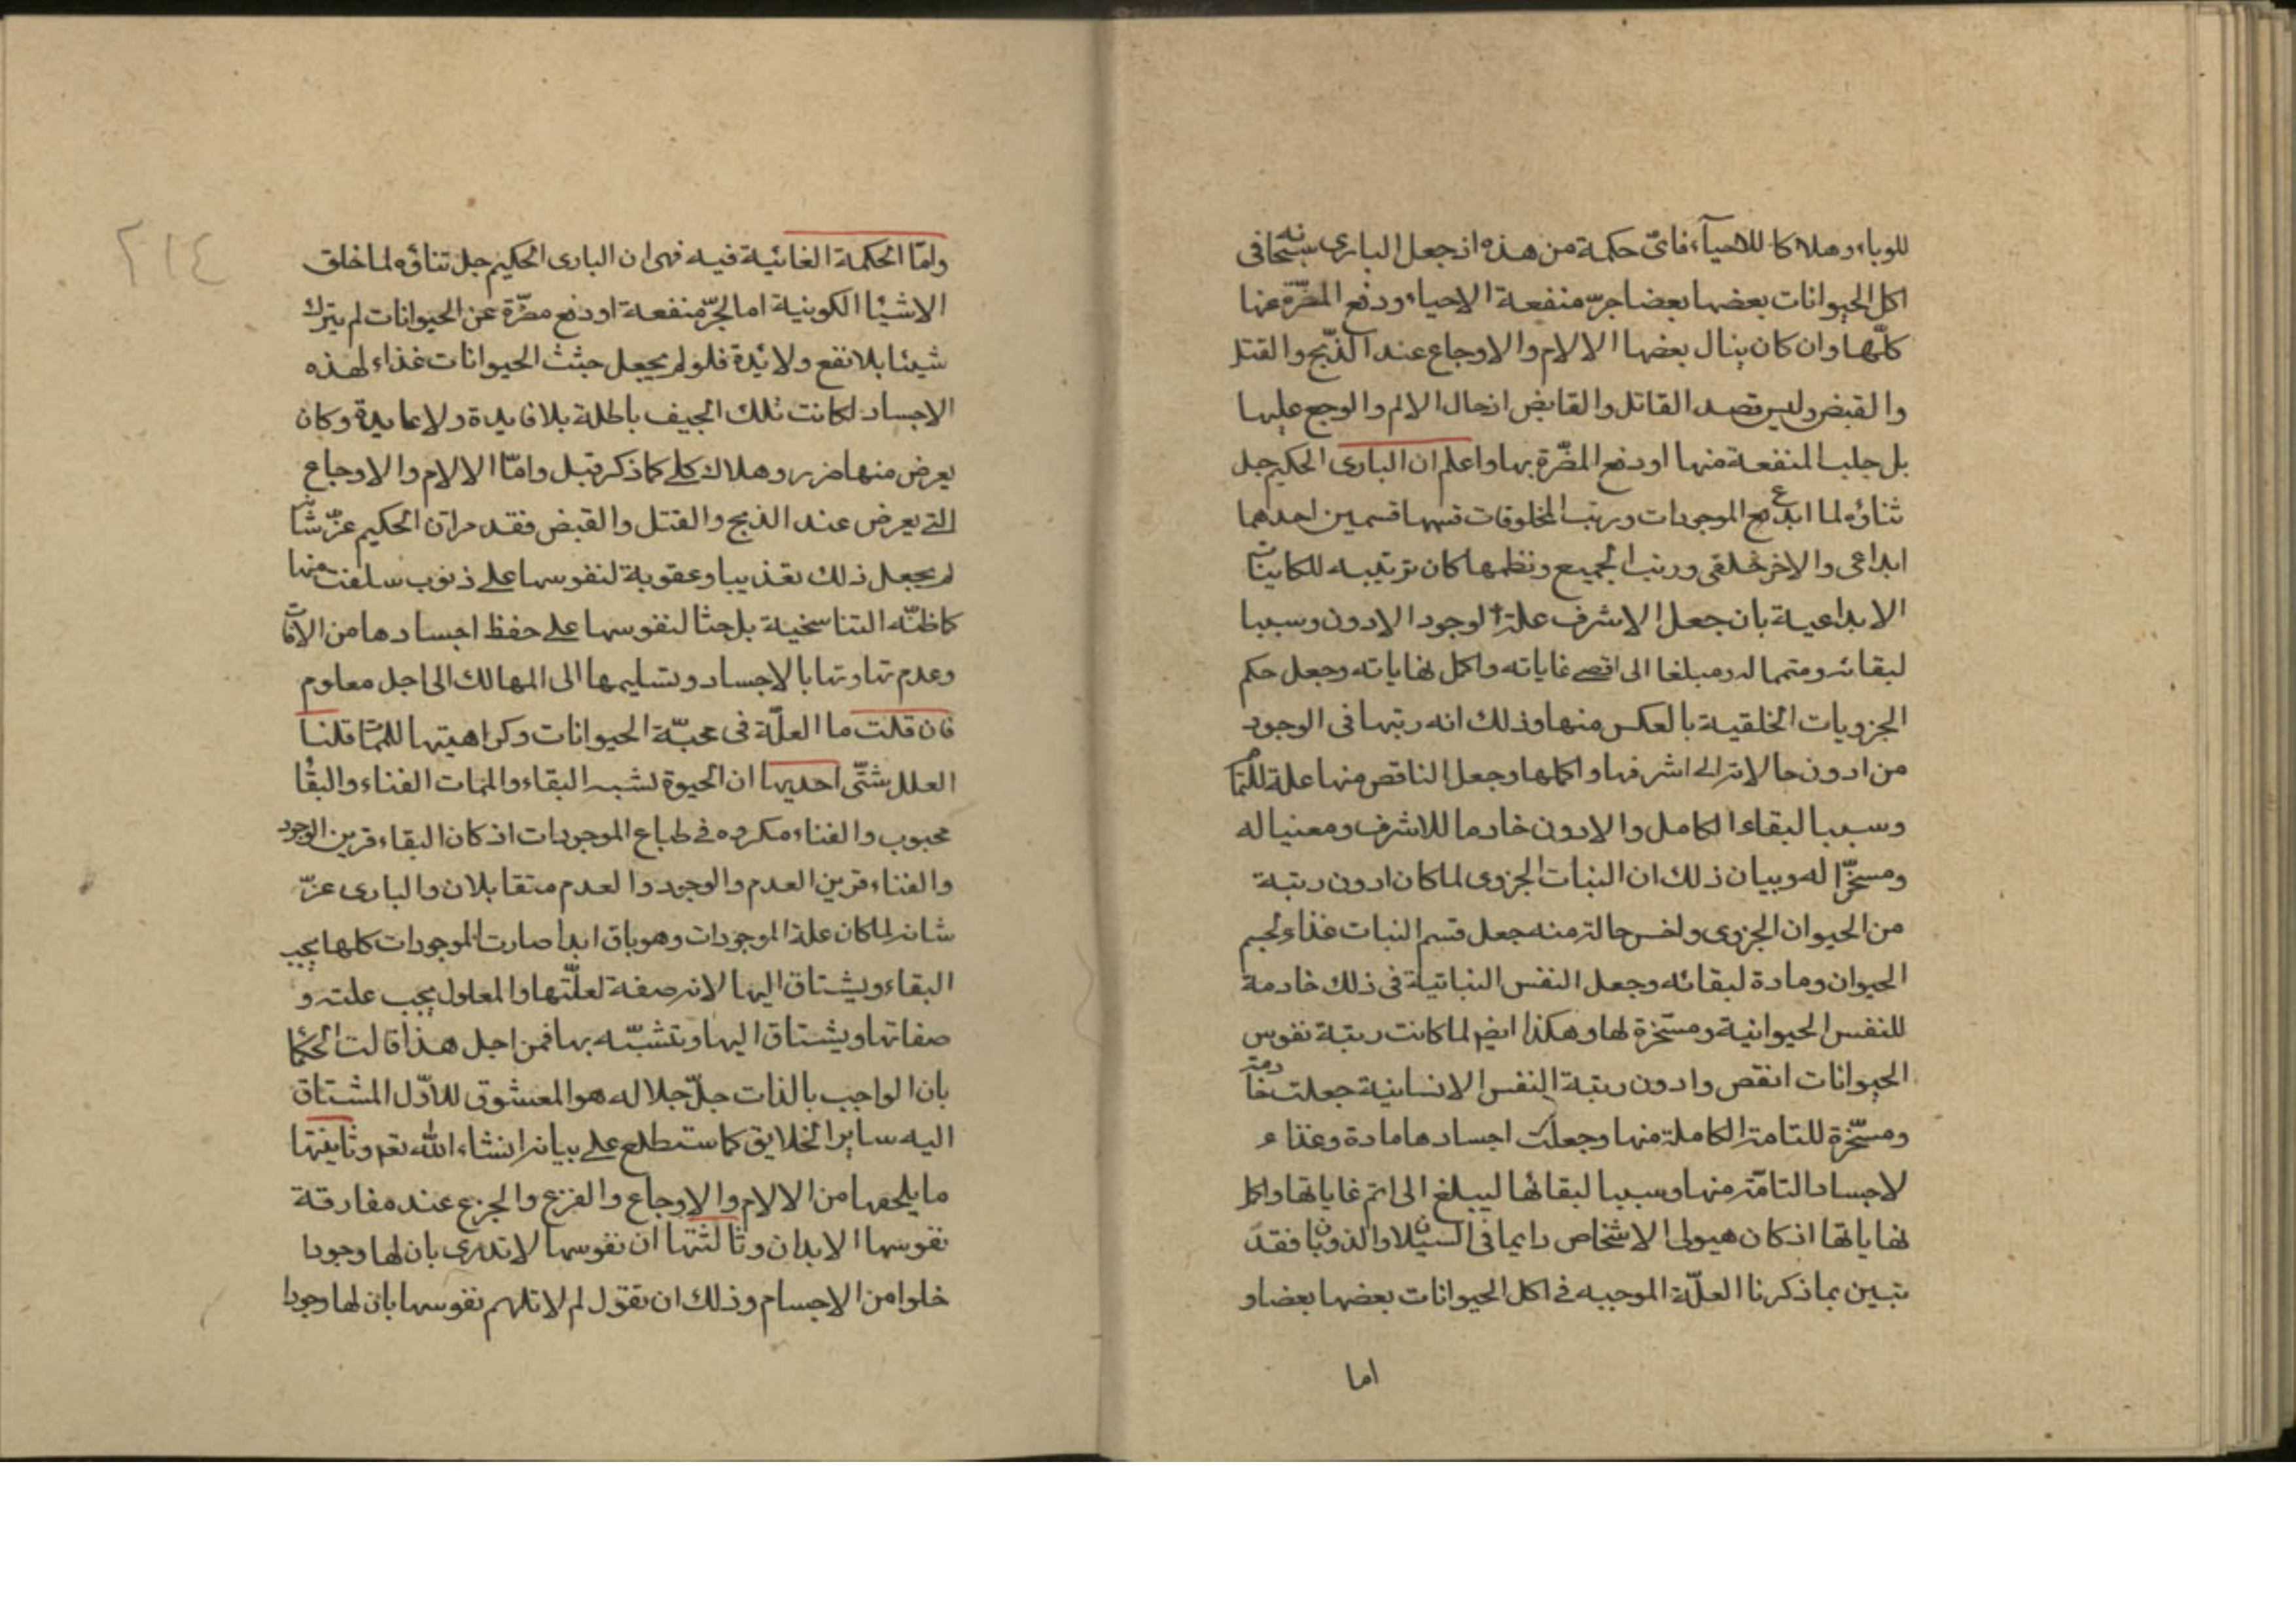 للوباء وهلاكا للاحياء فاىّ حكمة من هذه اذ جعل البارى سبحانه فى
اكل الحيوانات بعضها بعضا جرّ منفعة الاحياء ودفع المضرّة عنها
كلّها وان كان ينال بعضها الالام والاوجاع عند الذّبح والقتل
والقبض وليس قصد القاتل والقابض ادخال الالم والوجع عليها
بل جلب المنفعة منها او دفع المضّرة بها واعلم ان البارى الحكيم جل
ثناؤه لما ابدع الموجودات ورتب المخلوقات قسمها قسمين احدهما
ابداعى والاخر خلقى ورتب الجميع ونظمها كان ترتيبه للكاينات
الابداعية بان جعل الاشرف علة لوجود الادون وسببا
لبقائه ومتمما له ومبلغا الى اقصى غاياته واكمل نهاياته وجعل حكم
الجزويات الخلقية بالعكس منها وذلك انه رتبها فى الوجود
من ادون حالاته الى اشرفها واكملها وجعل الناقص منها علة للتمام
وسببا لبقاء الكامل والادون خادما للاشرف ومعنيا له
ومسخّرا له وبيان ذلك ان النبات الجزوى لما كان ادون رتبة
من الحيوان الجزوى واخس حالة منه جعل قسم النبات غذاء لجسم
الحيوان ومادة لبقائه وجعل النفس النباتية فى ذلك خادمة
للنفس الحيوانية ومسخرة لها وهكذا ايضا لما كانت رتبة نفوس
الحيوانات انقص وادون رتبة النفس الانسانية جعلت خادمة
ومسخّرة للتامة الكاملة منها وجعلت اجسادها مادة وغذاء
لاجساد التامّة منها وسببا لبقائها ليبلغ الى اتم غاياتها واكمل
نهاياتها اذ كان هيولى الاشخاص دايما فى السيلان والذوبان فقد
تبين بما ذكرنا العلّة الموجبه فى اكل الحيوانات بعضها بعضا و
اما
٢١٤
وامّا الحكمة الغائية فيه فهى ان البارى الحكيم جل ثناؤه لما خلق
الاشيا الكونية اما لجرّ منفعة او دفع مضرّة عن الحيوانات لم يترك
شيئا بلا نفع ولا ئدة فلو لم يجعل جثث الحيوانات غذاء لهذه
الاجساد لكانت تلك الجيف باطلة بلا فايدة ولا عايدة وكان
يعرض منها ضرر وهلاك كلى كما ذكر قبل وامّا الالام والاوجاع
التى يعرض عند الذبح والقتل والقبض فقد مرّ ان الحكيم عزّ شانه
لم يجعل ذلك تعذيبا وعقوبة لنفوسها على ذنوب سلفت منها
كما ظنّه التناسخية بل حثا لنفوسها على حفظ اجسادها من الافات
وعدم تهاونها بالاجساد وتسليمها الى المهالك الى اجل معلوم
فان قلت ما العلّة فى محبّة الحيوانات وكراهيتها للممات قلنا
العلل شتّى احديها ان الحيوة لشبه البقاء والممات الفناء والبقا
محبوب والفناء مكروه فى طباع الموجودات اذ كان البقاء قرين الوجود
والفناء قرين العدم والوجود والعدم متقابلان والبارى عزّ
شانه لما كان علة الموجودات وهو باق ابدا صارت الموجودات كلها يحب
البقاء ويشتاق اليها لانه صفة لعلّتها والمعلول يحب علته و
صفاتها ويشتاق اليها ويتشبّه بها فمن اجل هذا قالت الحكما
بان الواجب بالذات جلّ جلاله هو المعشوق للاوّل المشتاق
اليه ساير الخلايق كما ستطلع على بيانه انشاء الله تعم وثانيتها
ما يلحقها من الالام والاوجاع والفزع والجزع عند مفارقة
نفوسها الابدان وثالثتها ان نفوسها لا تدرى بان لها وجودا
خلوا من الاجسام وذلك ان تقول لم لا تلهم نفوسها بان لها وجودا